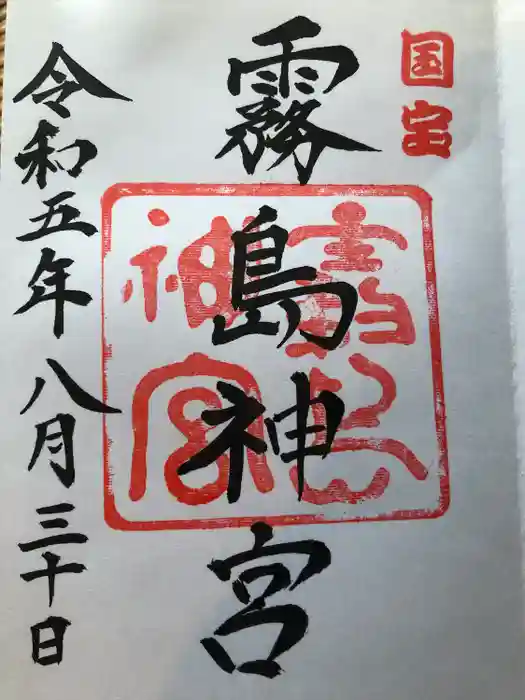 国宝
霧島神宮
霧島神宮
令和五年八月三十日